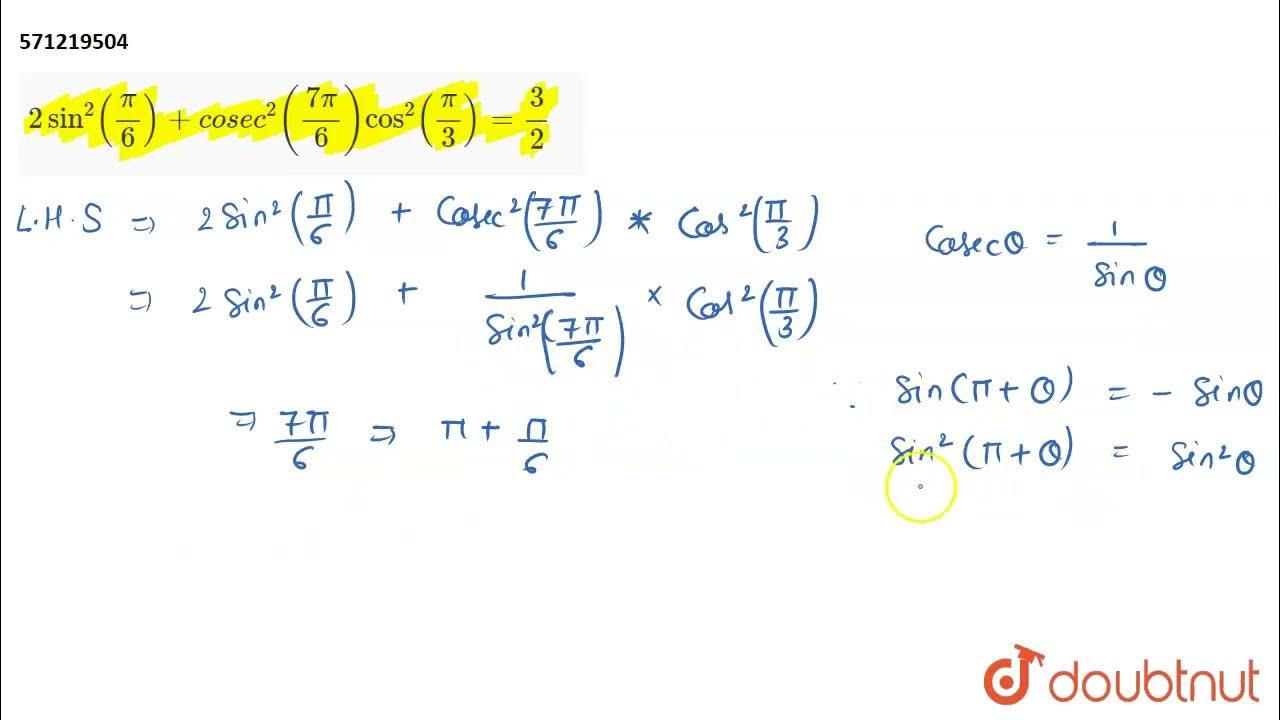 571219504
2 sin²(π/6) + cosec²(7π/6) cos²(π/3) = 3/2
L.H.S ⇒ 2 Sin²(π/6) + Cosec²(7π/6) * Cos²(π/3)
Cosecθ = 1/Sinθ
⇒ 2 Sin²(π/6) + 1/Sin²(7π/6) × Cos²(π/3)
∵ Sin(π+θ) = - Sinθ
⇒ 7π/6 ⇒ π + π/6
Sin²(π+θ) = Sin²θ
doubtnut